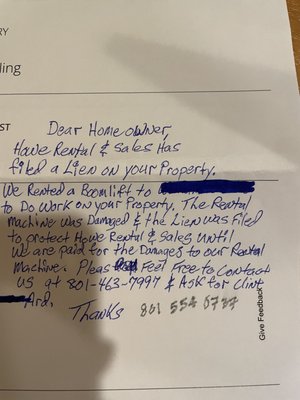 RY
ling
ST
Dear Homeowner,
Howe Rental & Sales Has
filed a Lien on your Property.
We Rented a Boomlift to
to Do work on your Property. The Rental
machine was Damaged & the Lien was Filed
to protect Howe Rental & Sales until
we are paid for the Damages to our Rental
Machine. Pleas Feel Free to Contact
us at 801-463-7997 & Ask for Clint
Ard,
Thanks 801 554
Give Feedback